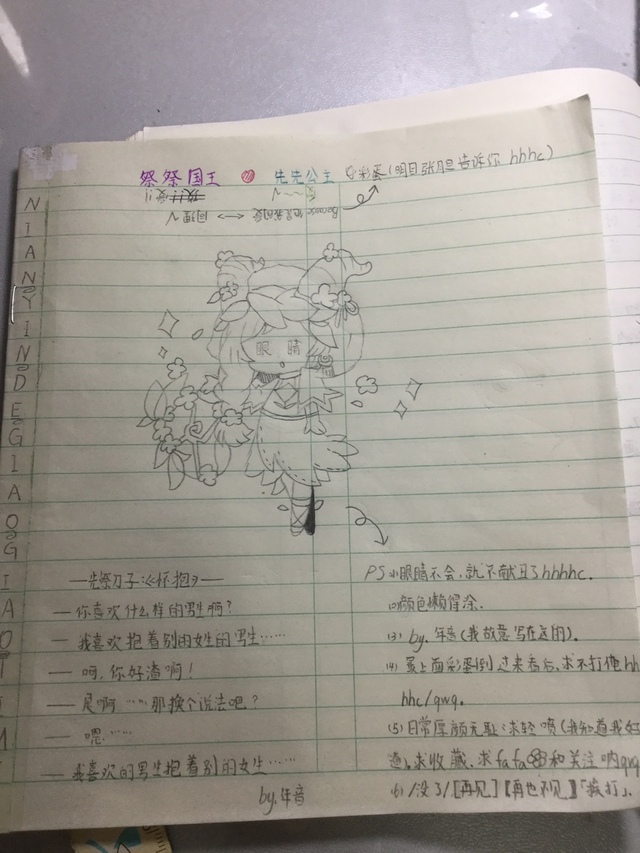 祭祭国王 先先公主 彩蛋(明日张月邑告诉你 hhhc)
眼睛
N
I
A
N
Y
I
N
D
E
G
I
A
O
G
I
A
O
—先祭刀子《怀抱》—
—你喜欢什么样的男生啊?
—我喜欢抱着别的女生的男生……
—呵,你好渣啊!
—是啊……那换个说法吧?
—嗯……
—我喜欢的男生抱着别的女生……
by.年音
PS⑴眼睛不会,就不献丑了hhhhc.
⑵颜色懒得涂.
⑶by.年音(我故意写在这的).
⑷最上面彩蛋倒过来看后,求不打俺hh
hhc/qwq.
⑸日常厚颜无耻:求轻喷(我知道我红
,求收藏.求fafa和关注呐qwq
⑹/没了/[再见][再也不见]「挨打」.